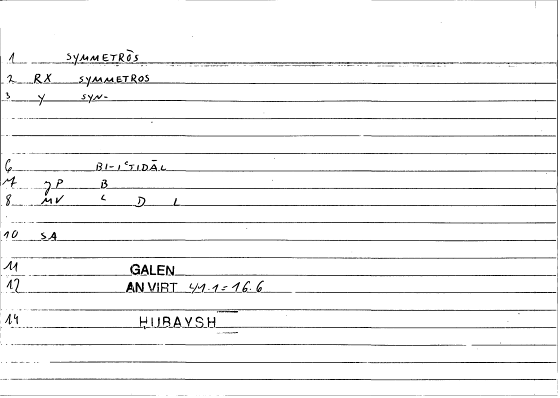 1 SYMMETRŌS
2 RX SYMMETROS
3 Y SYN-
6 BI-IʿTIDĀL
7 JP B
8 MV ʿ D L
10 SA
11 GALEN
12 AN VIRT 41.1=16.6
14 ḤUBAYSH